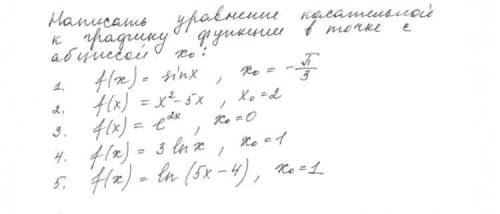 Написать уравнение касательной
к графику функции в точке с
абциссой x₀:
1. f(x) = sinx , x₀ = -π/3
2. f(x) = x²-5x , x₀=2
3. f(x) = e²ˣ , x₀=0
4. f(x) = 3 ln x , x₀=1
5. f(x) = ln (5x-4) , x₀=1